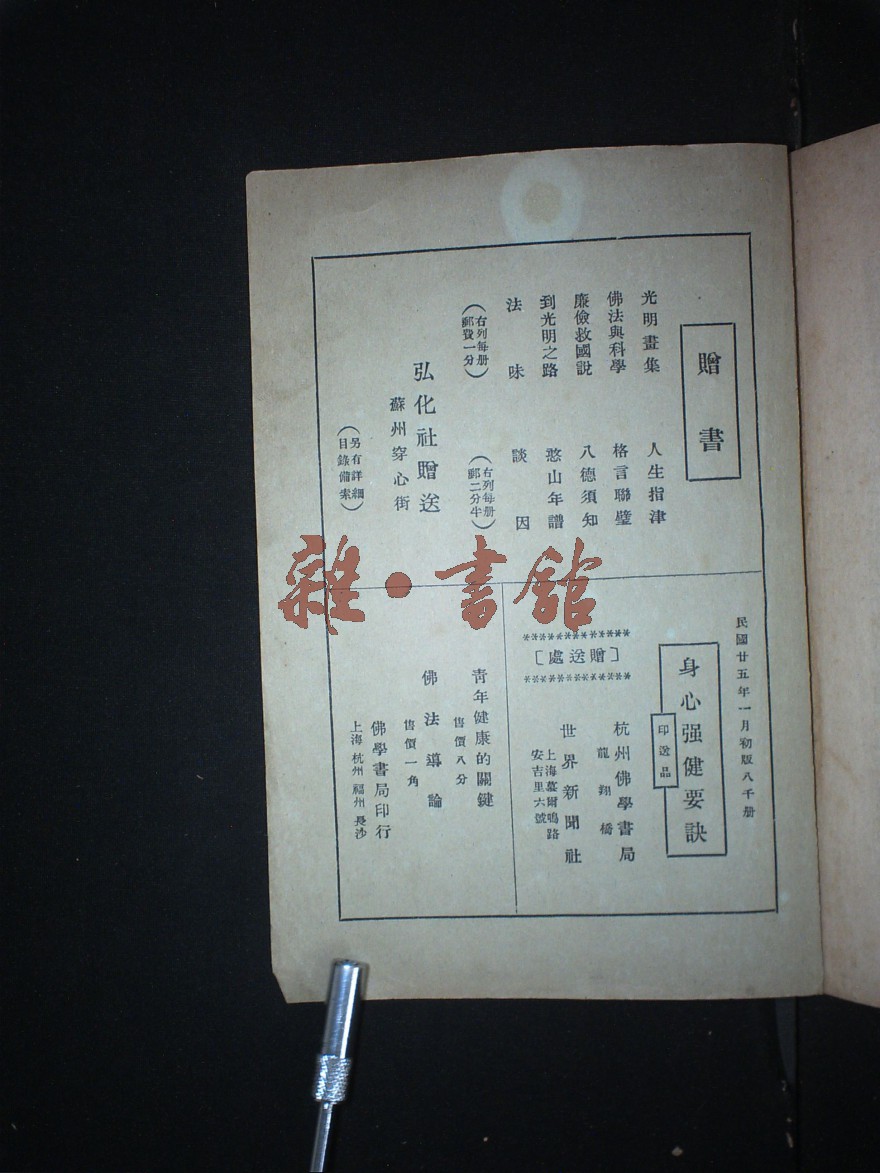 贈書
光明畫集 人生指津
佛法與科學 格言聯璧
廉儉救國說 八德須知
到光明之路 憨山年譜
法味 談因
（右列每册郵費一分）
（右列每册郵二分半）
弘化社贈送
蘇州穿心街
（另有詳細目錄備索）
民國廿五年一月初版八千册
身心强健要訣
印送品
［贈送處］
杭州佛學書局
龍翔橋
世界新聞社
上海慕爾鳴路
安吉里六號
青年健康的關鍵
售價八分
佛法導論
售價一角
佛學書局印行
上海 杭州 福州 長沙
雜·書館